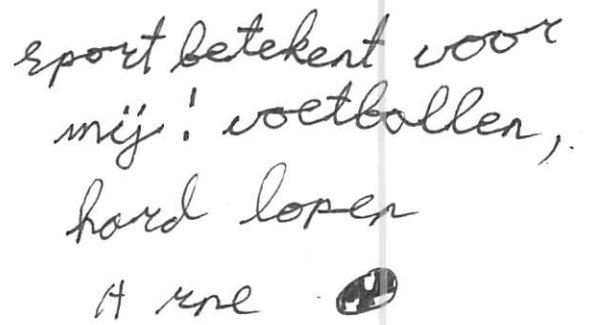 sport betekent voor
mij! voetballen,
hard lopen
Arne